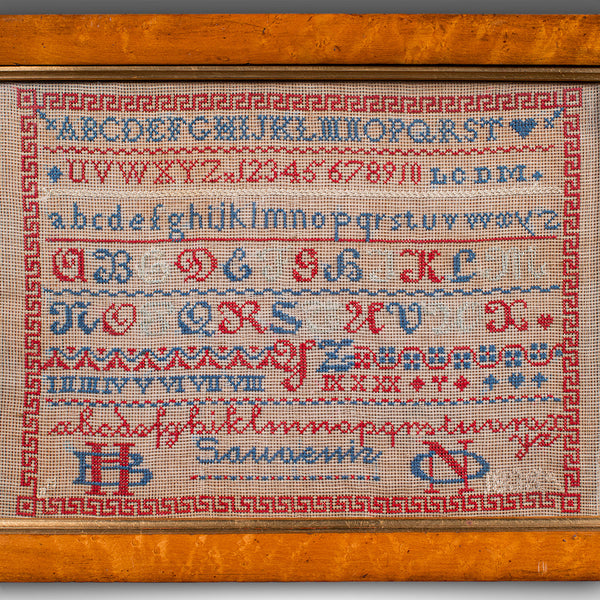 ABCDEFGHIJKLMNOPQRST
UVWXYZ 12345678910 LCDM
abcdefghijklmnopqrstuvwxyz
A B C D E G H K L
N O Q R S U V X
Y Z
I II III IV V VI VII VIII IX X XX
abcdefghijklmnopqrstuvwxyz
HB Souvenir NO